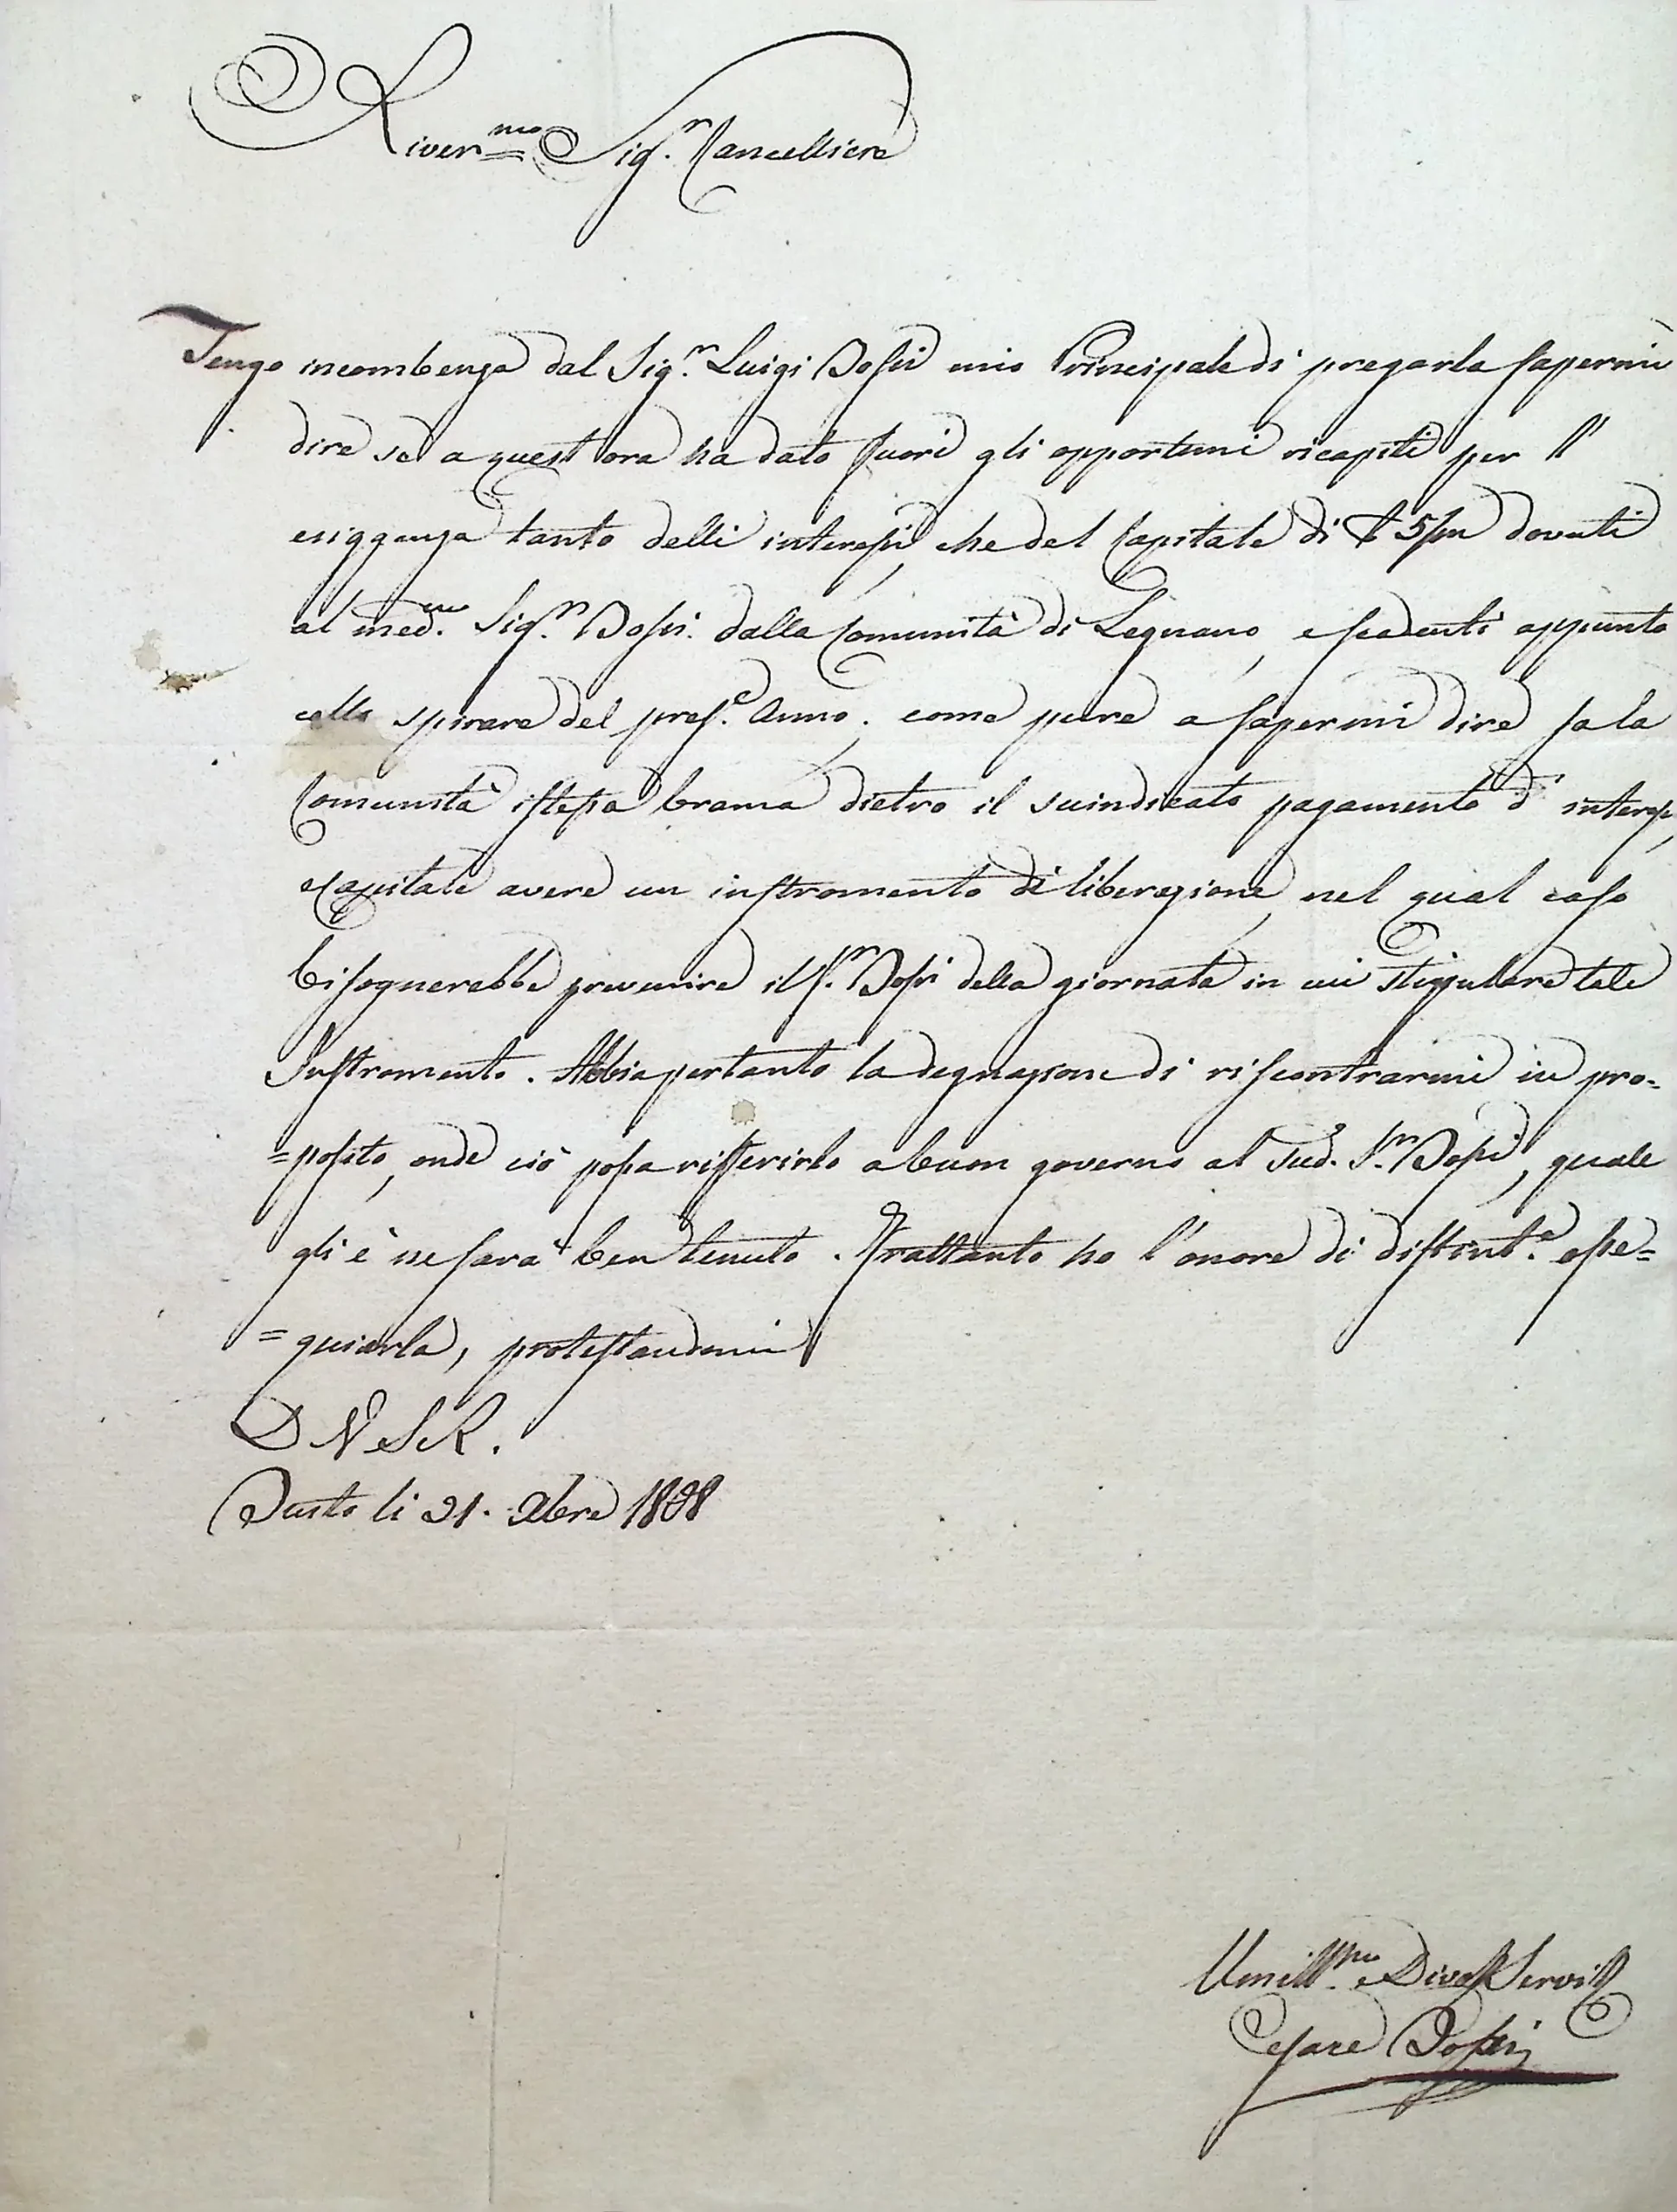 River.mo Sig.r Cancelliere
Tengo incombenza dal Sig.r Luigi Dossi mio Principale di pregarla sapermi
dire se a quest ora ha dato fuori gli opportuni ricapiti per l'
esiggenza tanto delli interessi, che del Capitale di £ 5/m dovuti
al med.mo Sig.r Dossi dalla Comunità di Legnano, e scadenti appunto
collo spirare del pres.e Anno; come pure a sapermi dire sa la
Comunità istessa brama dietro il suindicato pagamento d' interessi,
e Capitale avere un instromento di liberazione, nel qual caso
bisognerebbe prevenire il S.r Dossi della giornata in cui stippulare tale
Instromento. Abbia pertanto la degnazione di riscontrarmi in pro=
=posito, onde ciò possa rifferirlo a buon governo al sud.o S.r Dossi, quale
gli è ne sarà ben tenuto. Frattanto ho l'onore di distint.e osse=
=quiarla, protestandomi
D V S R.
Busto li 21. Xbre 1808
Umill.mo e Div.mo Servit.e
Cesare Dossi